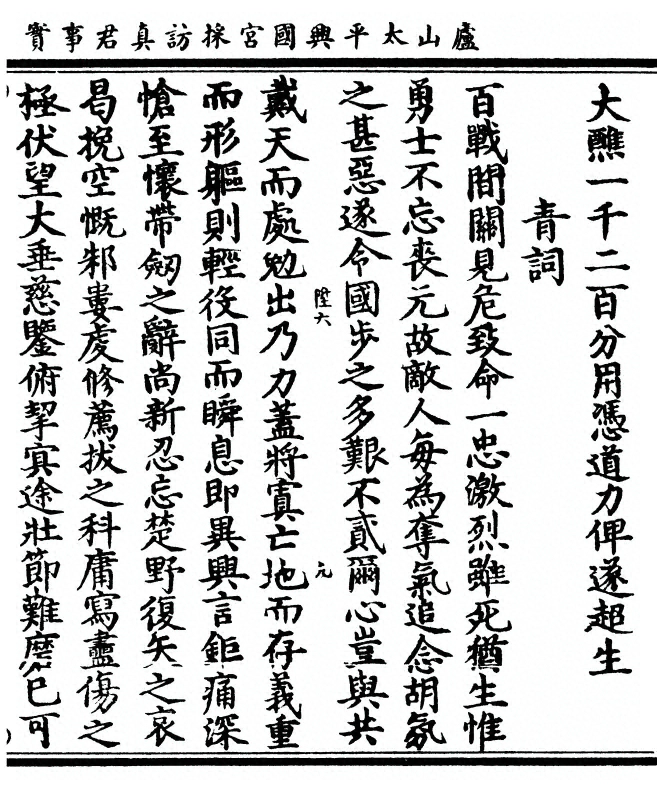 廬山太平興國宮採訪真君事實
大醮一千二百分用憑道力俾遂超生
青詞
百戰間關見危致命一忠激烈雖死猶生惟
勇士不忘喪元故敵人每為奪氣追念胡氛
之甚惡遂令國步之多艱不貳爾心豈與共
戴天而處勉出乃力蓋將寘亡地而存義重
陸六
元
而形軀則輕役同而瞬息即異興言鉅痛深
愴至懷帶劒之辭尚新忍忘楚野復矢之哀
曷挽空慨邾婁虔修薦拔之科庸寫盡傷之
極伏望大垂慈鑒俯挈冥途壯節難磨已可